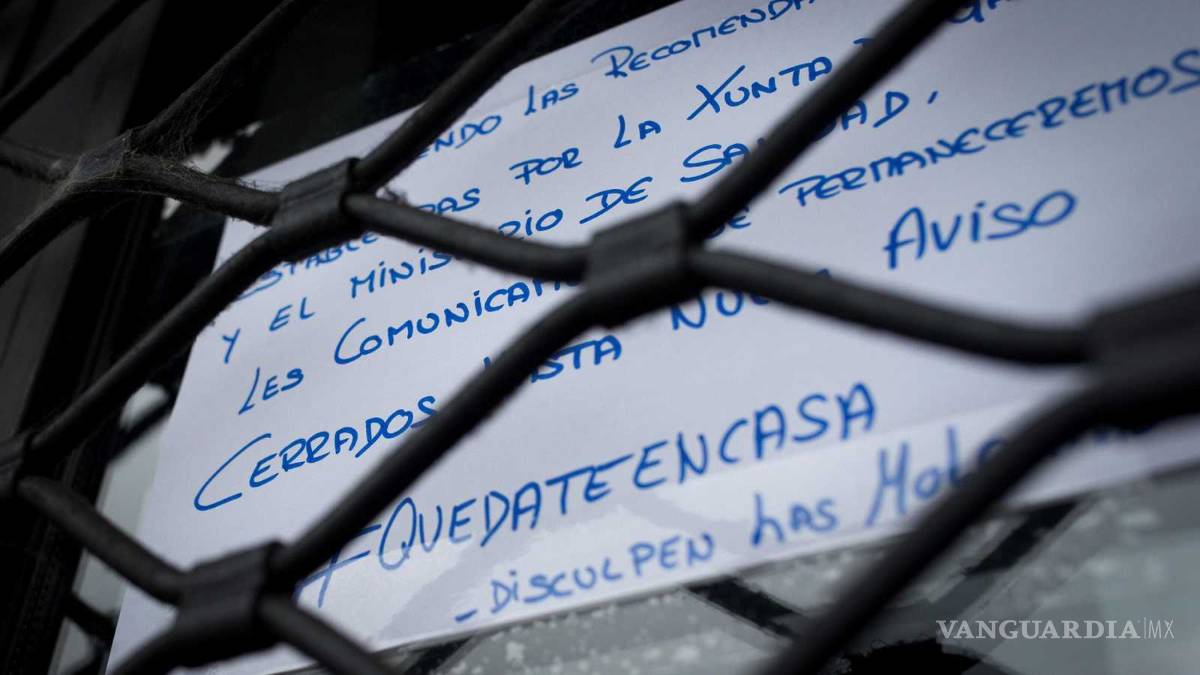 LAS RECOMENDA
POR LA XUNTA
Y EL MINISTERIO DE SANIDAD,
LES COMUNICAMOS QUE PERMANECEREMOS
CERRADOS HASTA NUEVO AVISO
#QUEDATEENCASA
- DISCULPEN LAS MOLE
VANGUARDIA|MX